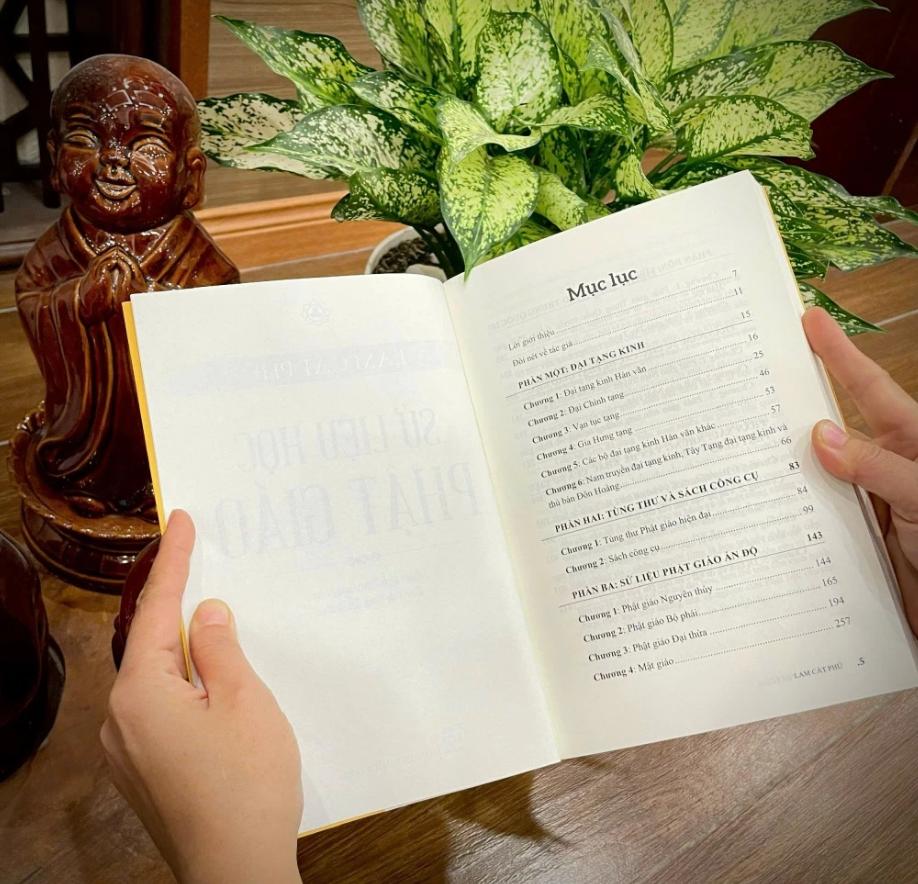 SỬ LIỆU HỌC
PHẬT GIÁO
Mục lục
Lời giới thiệu 7
Đôi nét về tác giả 11
PHẦN MỘT: ĐẠI TẠNG KINH 15
Chương 1: Đại tạng kinh Hán văn 16
Chương 2: Đại Chính tạng 25
Chương 3: Vạn tục tạng 46
Chương 4: Gia Hưng tạng 53
Chương 5: Các bộ đại tạng kinh Hán văn khác 57
Chương 6: Nam truyền đại tạng kinh, Tây Tạng đại tạng kinh và
thủ bản Đôn Hoàng 66
PHẦN HAI: TÙNG THƯ VÀ SÁCH CÔNG CỤ 83
Chương 1: Tùng thư Phật giáo hiện đại 84
Chương 2: Sách công cụ 99
PHẦN BA: SỬ LIỆU PHẬT GIÁO ẤN ĐỘ 143
Chương 1: Phật giáo Nguyên thủy 144
Chương 2: Phật giáo Bộ phái 165
Chương 3: Phật giáo Đại thừa 194
Chương 4: Mật giáo 257
LAM CÁT PHÚ .5